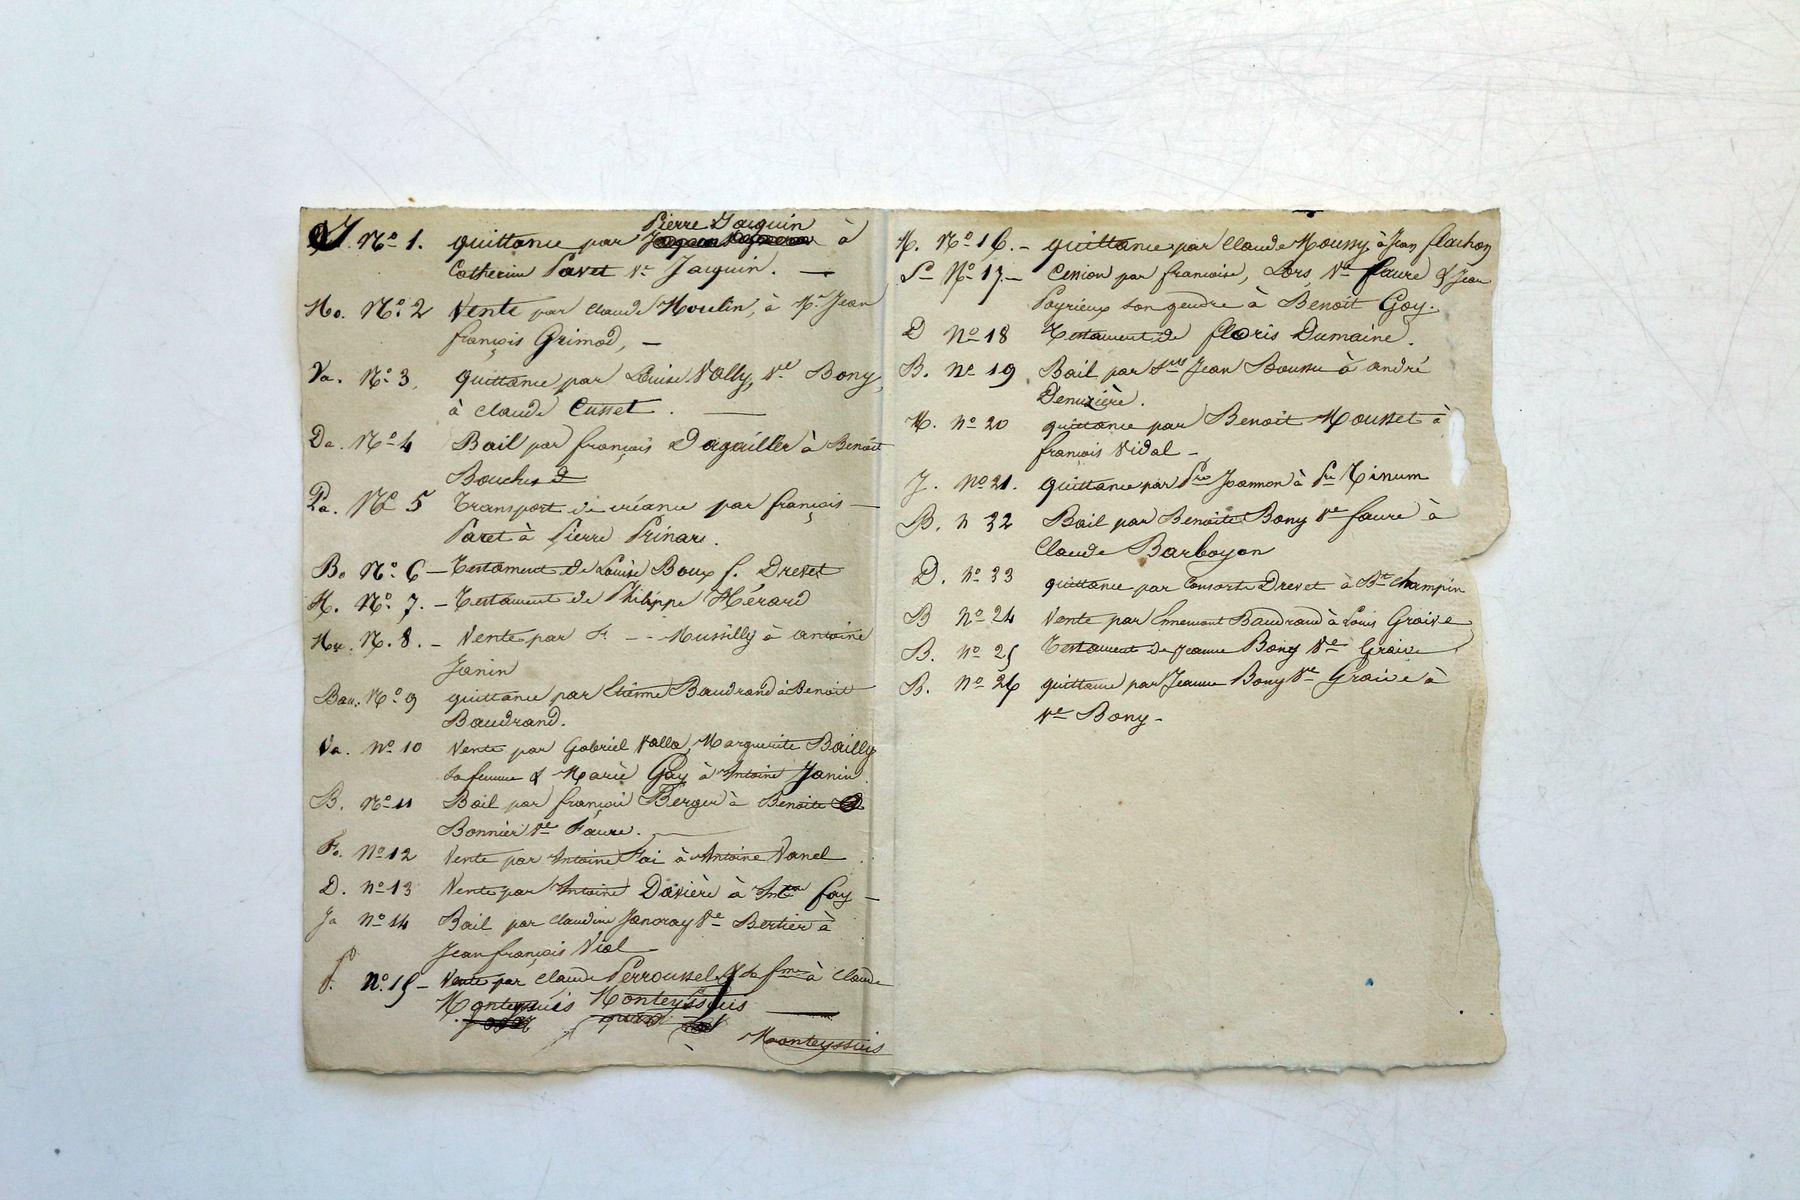 J. No 1. quittance par Pierre Jacquin à
Catherine Pavet ve Jacquin. —
Mo. No. 2 Vente par Claude Moulin, à Mr Jean
françois Grimod, —
Va. No. 3, quittance par Louise Vally, ve Bony,
à Claude Cusset. —
Da. No. 4 Bail par françois Dagailler à Benoit
Pa. No 5 Transport de créance par françois —
Paret à Pierre Prinare.
Bo No. 6 — Testament de Louise Boux f. Drevet
H. No. 7. — Testament de Philippe Hérard
N. 8. — Vente par F. - - Mussilly à antoine
Janin
Bau. No 9 quittance par Etienne Baudrand à Benoit
Baudrand.
Va. no 10 Vente par Gabriel Valla, Marguerite Bailly
sa femme & Marie Gay à Antoine Janin.
B. No 11 Bail par françois Berger à Benoite
Bonnier ve Faure.
Fa. No 12 Vente par Antoine Fai à Antoine Vanel
D. no 13 Vente par Antoine Davière à Antne fay —
Ja no 14 Bail par Claudine Janoray Ve Bertier à
Jean françois Vial
P. no. 15 — Vente par Claude Perroussel & sa fme à Claude
Monteyssuis Monteyssuis —
Monteyssuis
M. No 16. — quittance par Claude Moussy à Jean flachon
No 17. — Cession par francoise, Lors, Ve faure & Jean
Payrieux son gendre à Benoit Goy.
D No 18 Testament de floris Dumaine.
B. No 19 Bail par Jean Boussu à andré
Denuzière.
M. no 20 quittance par Benoit Mousset à
françois Vidal —
J. No 21. quittance par Pre Joannon à Pre Tinum
B. n 22 Bail par Benoite Bony Ve faure à
Claude Barboyon
D. no 23 quittance par Consorts Drevet à Bt champin
B no 24 Vente par Ennemont Baudrand à Louis Graive
B. no 25 Testament de Jeanne Bony Ve Graive
B. no 26 quittance par Jeanne Bony Ve Graive à
Ve Bony —